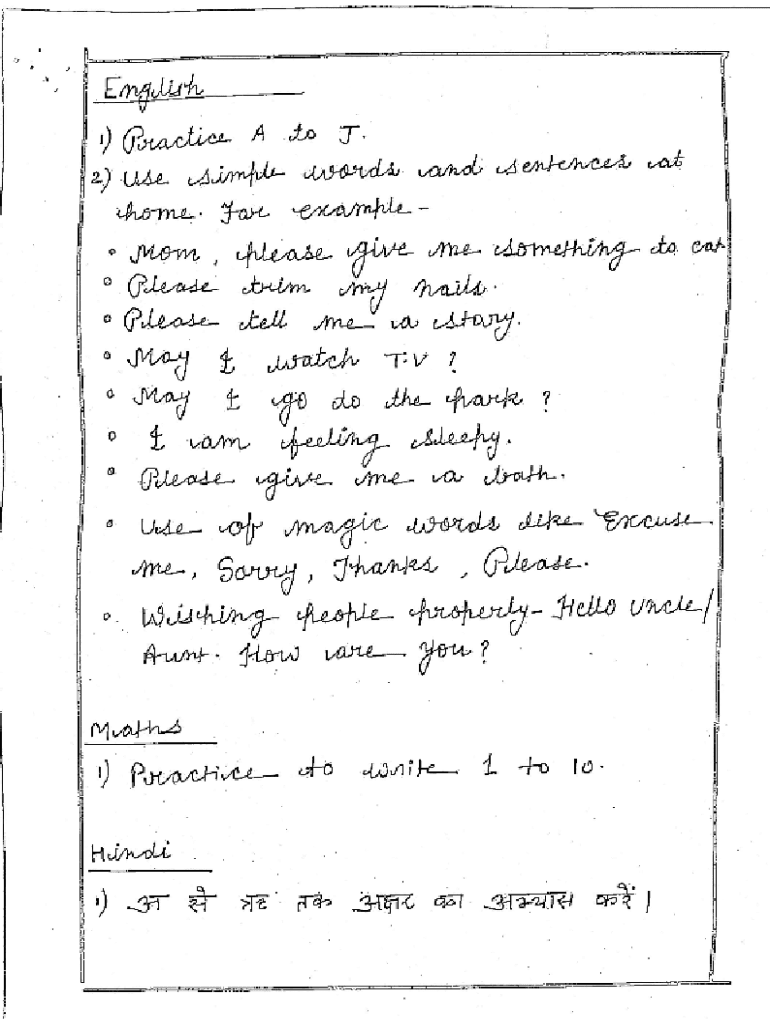 English
1) Practice A to J.
2) Use simple words and sentences at
home. For example -
• Mom, please give me something to eat
• Please trim my nails.
• Please tell me a story.
• May I watch T.V ?
• May I go to the park ?
• I am feeling sleepy.
• Please give me a bath.
• Use of magic words like Excuse
me, Sorry, Thanks, Please.
• Wishing people properly - Hello Uncle/
Aunt. How are you?
Maths
1) Practice to write 1 to 10.
Hindi
1) अ से ऋ तक अक्षर का अभ्यास करें।